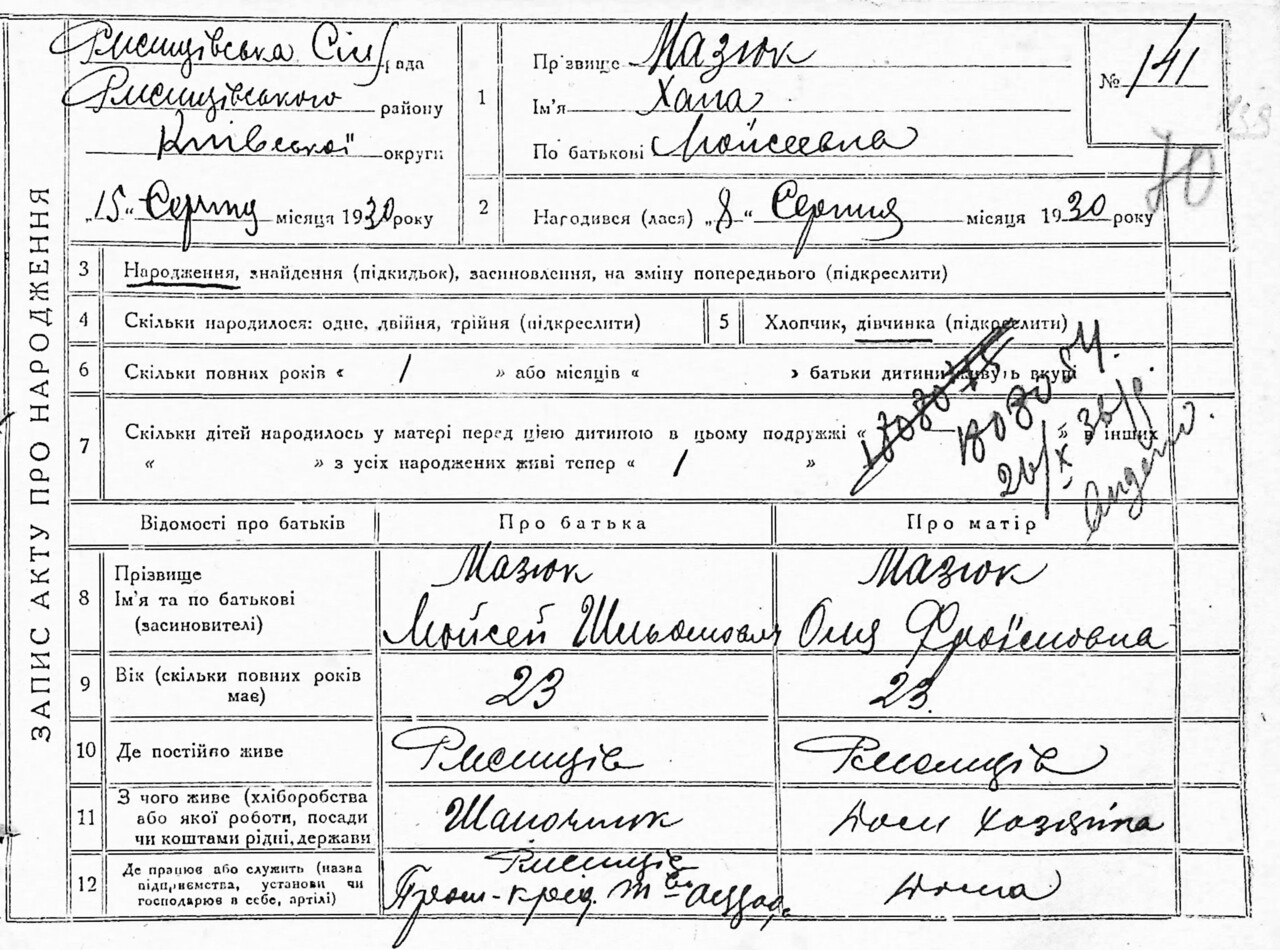 ЗАПИС АКТУ ПРО НАРОДЖЕННЯ
Ржищівська Сіл рада
Ржищівського району
Київської округи
„15“ Серпня місяця 1930 року
1
Прізвище Мазюк
Ім'я Хана
По батькові Мойсеевна
№ 141
139
70
2
Нагодився (лася) „8“ Серпня місяця 1930 року
3
Народження, знайдення (підкидьок), засиновлення, на зміну попереднього (підкреслити)
4
Скільки народилося: одне, двійня, трійня (підкреслити)
5
Хлопчик, дівчинка (підкреслити)
6
Скільки повних років « 1 » або місяців « » батьки дитини живуть вкупі
7
Скільки дітей народилось у матері перед цією дитиною в цьому подружжі « — » в інших
« » з усіх народжених живі тепер « 1 »
Відомості про батьків
Про батька
Про матір
8
Прізвище
Ім'я та по батькові
(засиновителі)
Мазюк
Мойсей
Мазюк
Оля Фроїмовна
9
Вік (скільки повних років
має)
23
23.
10
Де постійно живе
Ржищів
Ржищів
11
З чого живе (хліборобства
або якої роботи, посади
чи коштами рідні, держави
Шапочник
Дом хазяйка
12
Де працює або служить (назва
підприємства, установи чи
господарює в себе, артілі)
Ржищів
Пром-кред. т-во
Дома